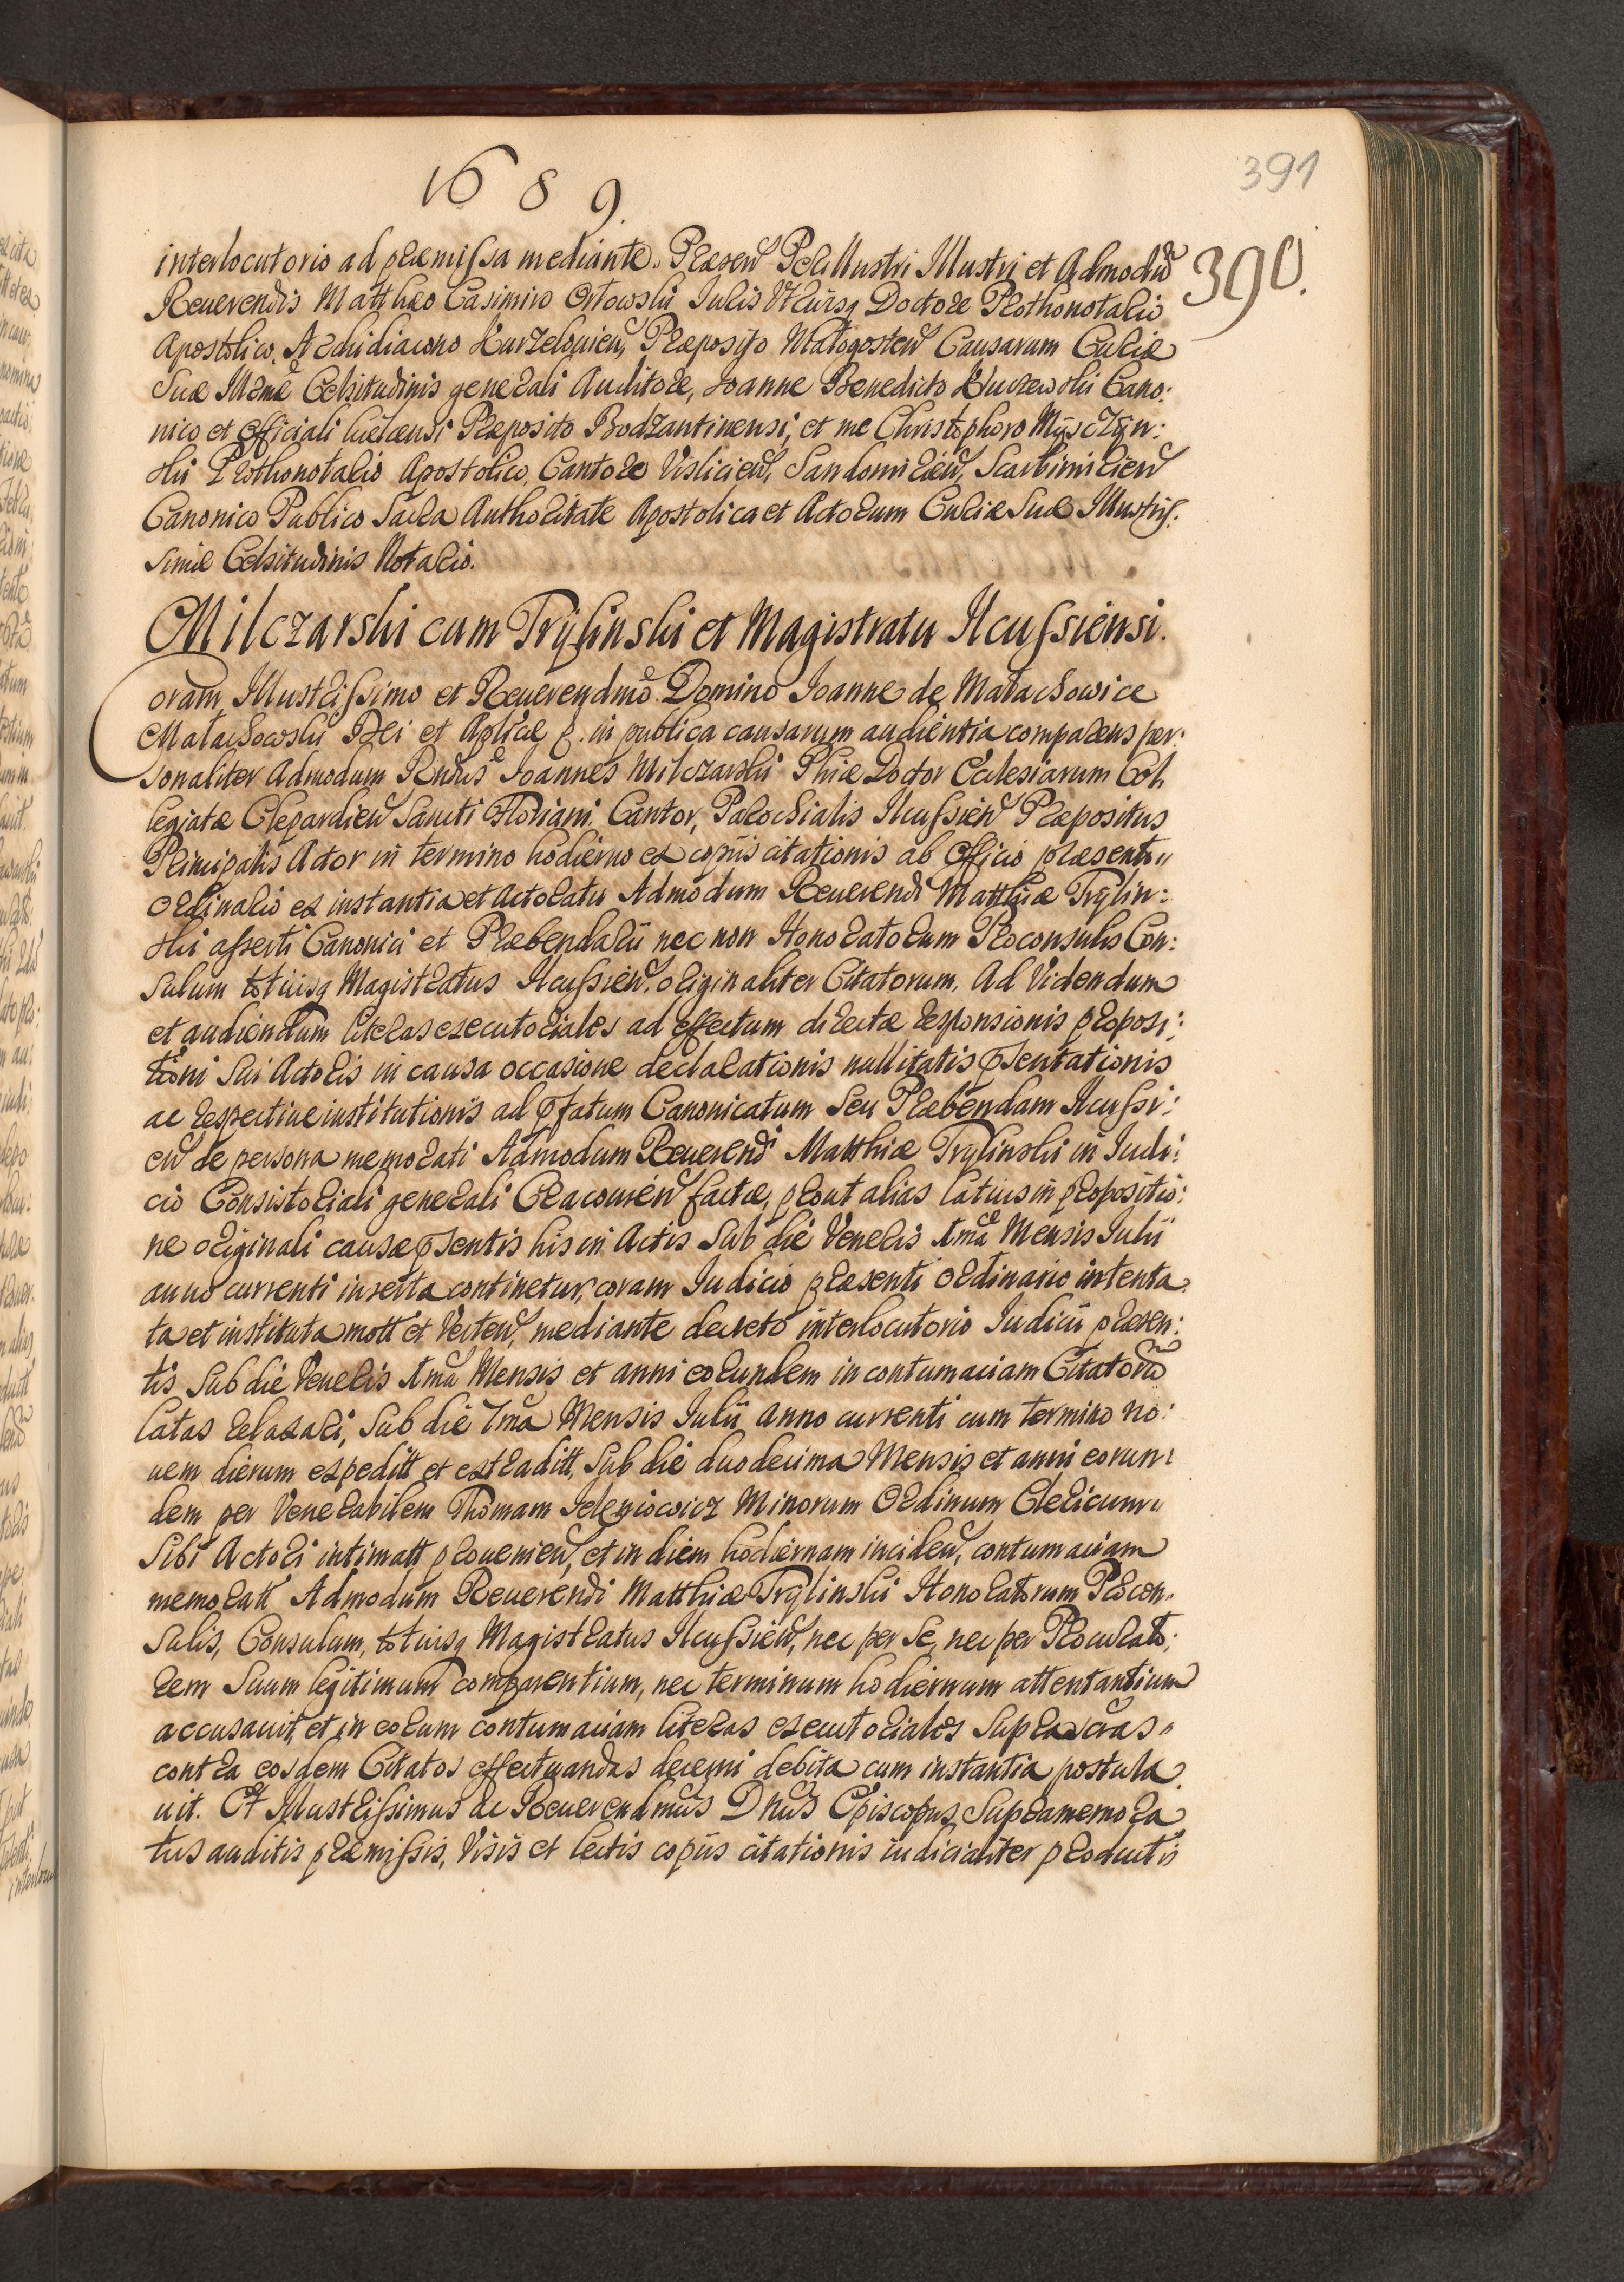 391
1689.
390.
interlocutorio ad præmissa mediante. Præsen Perillustri Illustri et Admodu
Reuerendis Matthæo Casimiro Orłowski Iuris Vtriusq Doctore Prothonotario
Apostolico, Archidiacono Kurzelouien, Præposito Małogosten Causarum Curiæ
Suæ Illmæ Celsitudinis generali Auditore, Joanne Benedicto Kurzewski Cano:
nico et Officiali kielcensi Præposito Bodzantinensi, et me Christophoro Mysczÿn:
ski Prothonotario Apostolico, Cantore Vislicien, Sandomirien, Scarbimirien
Canonico Publico Sacra Authoritate Apostolica et Actorum Curiæ Suæ Illustris:
simæ Celsitudinis Notario.
Milczarski cum Trÿlinski et Magistratu Ilcussiensi.
Coram Illustrissimo et Reuerendmo Domino Ioanne de Małachowice
Małachowski Dei et Aplicæ p. in publica causarum audientia comparens per:
sonaliter Admodum Rndus Joannes Milczarski Phiæ Doctor Ecclesiarum Col,
legiatæ Clepardien Sancti Floriani Cantor, Parochialis Ilcussien Præpositus
Principalis Actor in termino hodierno ex copiis citationis ab Officio præsenti
Ordinario ex instantia et actoratu Admodum Reuerendi Matthiæ Trÿlin:
ski asserti Canonici et Præbendarii nec non Honoratorum Proconsulis Con:
sulum totiusq Magistratus Ilcussien, originaliter Citatorum, Ad Videndum
et audiendum literas executoriales ad effectum directæ responsionis proposi:
tioni sui Actoris in causa occasione declarationis nullitatis psentationis
ac respectiue institutionis ad pfatum Canonicatum seu Præbendam Ilcussi:
en de persona memorati Admodum Reuerendi Matthiæ Trylinski in Iudi:
cio Consistoriali generali Cracouien factæ, prout alias latius in propositio:
ne originali causæ psentis his in Actis Sub die Veneris 1ma Mensis Iulii
anno currenti inserta continetur, coram Iudicio præsenti Ordinario intenta,
ta et instituta mott et Verten, mediante decreto interlocutorio Iudicii præsen:
tis Sub die Veneris 1ma Mensis et anni eorundem in contumaciam Citatoru
latas relaxari, Sub die 7ma Mensis Iulii Anno currenti cum termino no:
uem dierum expeditt et extraditt, Sub die duodecima Mensis et anni eorun:
dem per Venerabilem Thomam Jeleniowicz Minorum Ordinum Clericum
Sibi Actori intimatt prouenien, et in diem hodiernam inciden, contumaciam
memoratt Admodum Reuerendi Matthiæ Trÿlinski Honoratorum Procon,
sulis, Consulum, totiusq Magistratus Ilcussien, nec per se, nec per Procurato:
rem Suum legitimum comparentium, nec terminum hodiernum attentantium
accusauit, et in eorum contumaciam literas executoriales suprascras
contra eosdem Citatos effectuandas decerni debita cum instantia postula,
uit. Et Illustrissimus ac Reuerendmus Dnus Episcopus Supramemora
tus auditis præmissis, Visis et lectis copiis citationis iudicialiter productis